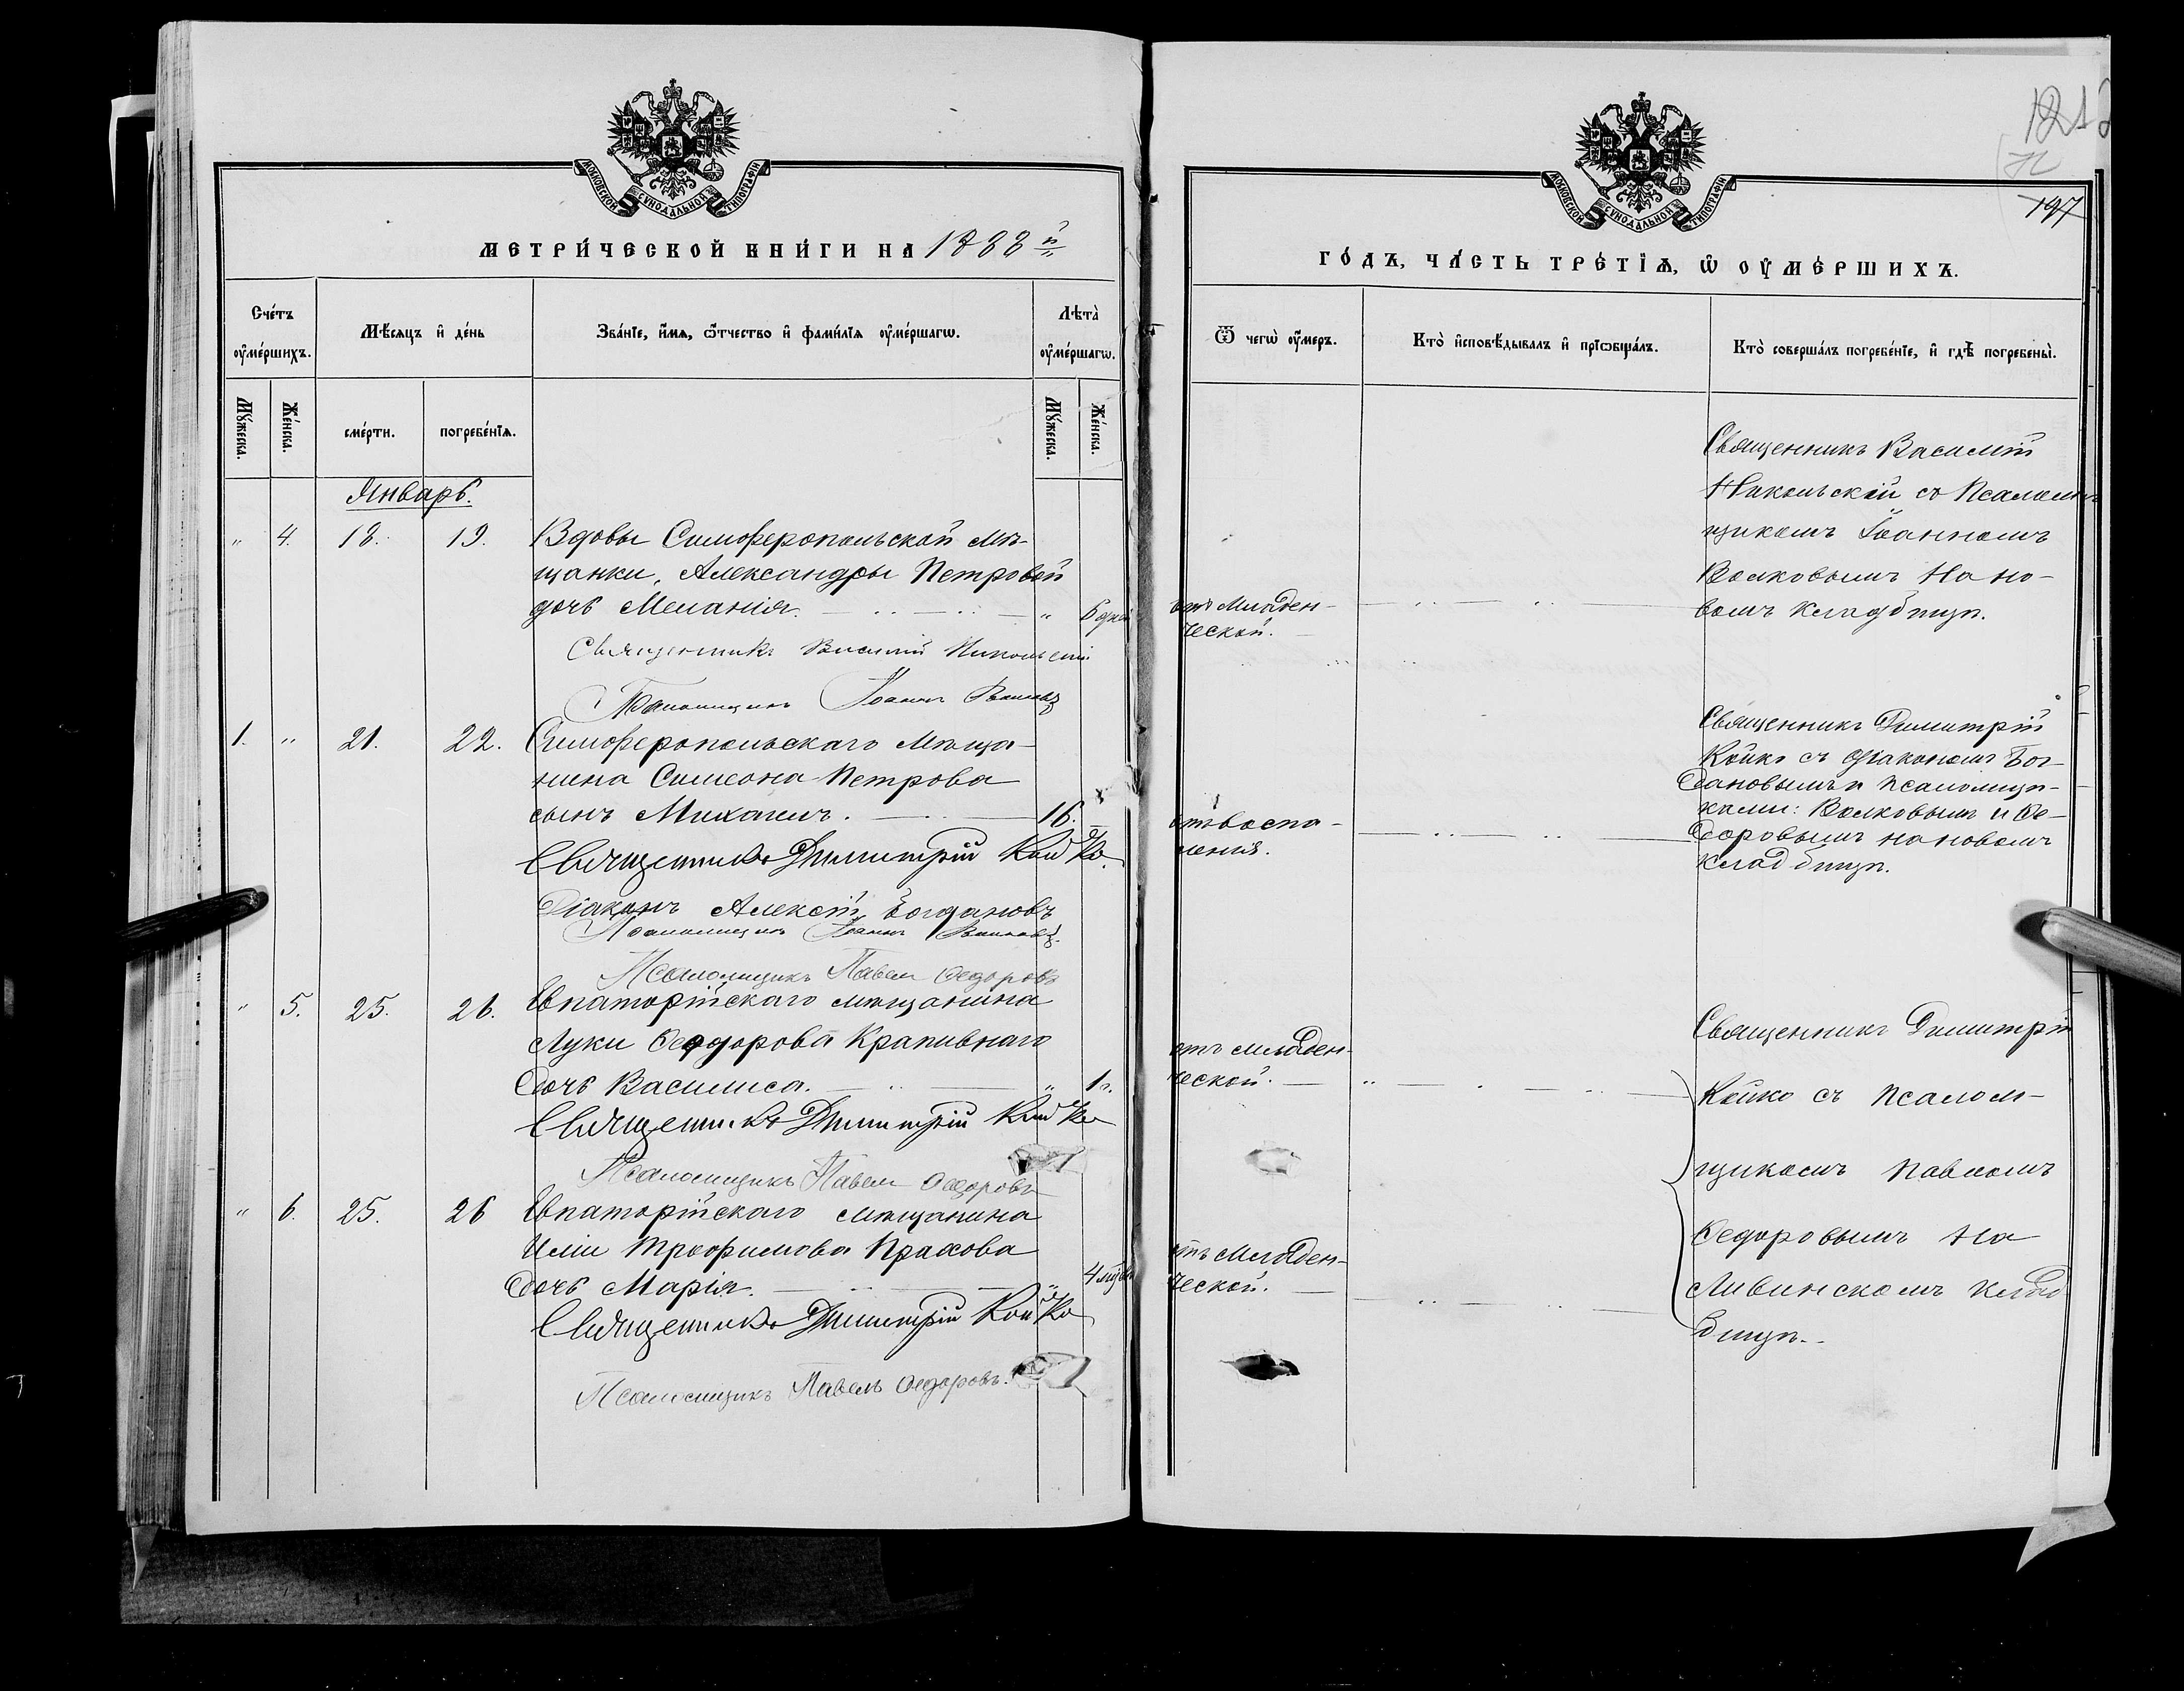 МОСКОВСКОЙ СѴНОДАЛЬНОЙ ТИПОГРАФІИ
МЕТРИ́ЧЕСКОЙ КНИ́ГИ НА 1888 й
Сче́тъ оу҆ме́ршихъ.
Мѣ́сяцъ и҆ де́нь
Зва́нїе, и҆́мѧ, ѻ҆́тчество и҆ фами́лїѧ оу҆ме́ршагѡ.
Лѣта̀ оу҆ме́ршагѡ.
Мꙋ́жеска.
Же́нска.
сме́рти.
погребе́нїѧ.
Мꙋ́жеска.
Же́нска.
Январь.
" 4. 18. 19. Вдовы Симферопольской мѣ-
щанки, Александры Петровой
дочь Меланія. " 6 дней
Священникъ Василій Никольскій
Псаломщикъ Іоаннъ Волковъ
1. " 21. 22. Симферопольскаго мѣща-
нина Симеона Петрова
сынъ Михаилъ. 16.
Священникъ Димитрій Койко.
Діаконъ Алексій Богдановъ
Псаломщикъ Іоаннъ Волковъ.
Псаломщикъ Павелъ Ѳедоровъ
" 5. 25. 26. Евпаторійскаго мѣщанина
Луки Ѳеодорова Крапивнаго
дочь Василиса. " 1 г.
Священникъ Димитрій Койко
Псаломщикъ Павелъ Ѳедоровъ
" 6. 25. 26 Евпаторійскаго мѣщанина
Иліи Трофимова Прахова
дочь Марія. "
Священникъ Димитрій Койко
Псаломщикъ Павелъ Ѳедоровъ.
МОСКОВСКОЙ СѴНОДАЛЬНОЙ ТИПОГРАФІИ
197
ГО́ДЪ, ЧА́СТЬ ТРЕ́ТЇѦ, Ѡ҆ ОУ҆МЕ́РШИХЪ.
Ѿ чегѡ̀ оу҆́меръ.
Кто̀ и҆сповѣ́дывалъ и҆ прїѡбща́лъ.
Кто̀ соверша́лъ погребе́нїе, и҆ гдѣ̀ погребены̀.
отъ младен-
ческой.
Священникъ Василій
Никольскій съ Псалом-
щикомъ Іоанномъ
Волковымъ на но-
вомъ кладбищѣ.
отъ воспа-
ленія.
Священникъ Димитрій
Койко съ діакономъ Бог-
дановымъ и псаломщи-
ками: Волковымъ и Ѳе-
доровымъ на новомъ
кладбищѣ.
отъ младен-
ческой.
отъ младен-
ческой.
Священникъ Димитрій
Койко съ псалом-
щикомъ Павломъ
Ѳедоровымъ на
Ливинскомъ клад
бищѣ.